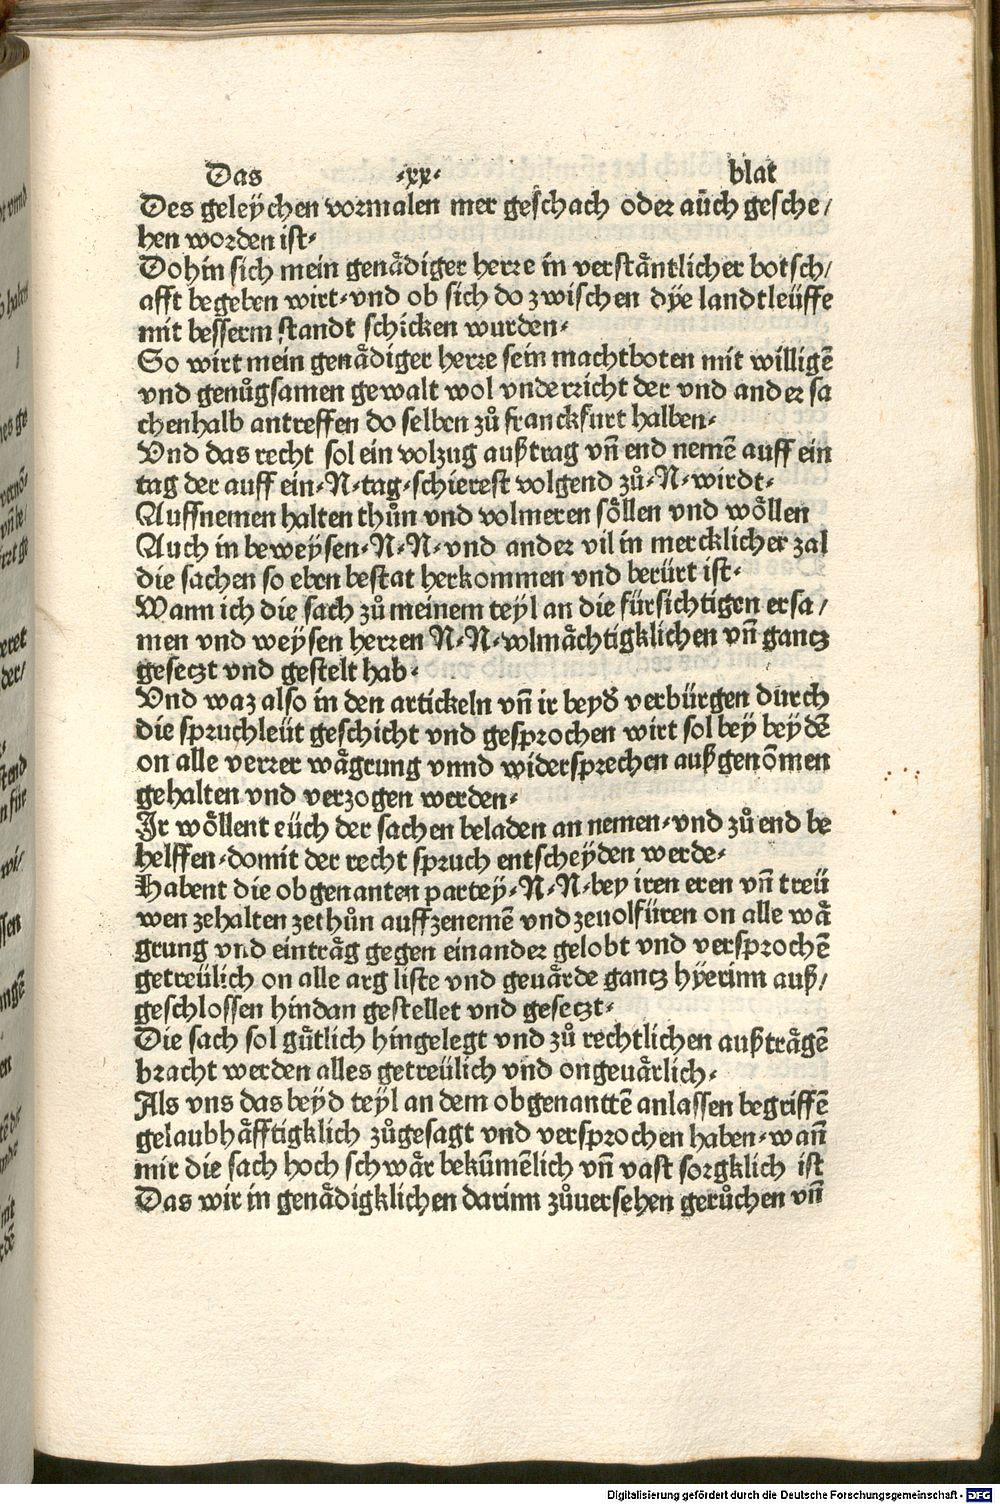 Das .xx. blat
Des geleÿchen vormalen mer geschach oder aüch gesche/
hen worden ist.
Dohin sich mein genådiger herre in verståntlicher botsch/
afft begeben wirt.vnd ob sich do zwischen dÿe landtleüffe
mit besserm standt schicken wurden.
So wirt mein genådiger herre sein machtboten mit willigē
vnd genůgsamen gewalt wol vnderricht der vnd ander sa
chenhalb antreffen do selben zů franckfurt halben.
Vnd das recht sol ein volzug außtrag vn̄ end nemē auff ein
tag der auff ein.N.tag.schierest volgend zů.N.wirdt.
Auffnemen halten thůn vnd volmeren sŏllen vnd wŏllen
Auch in beweysen.N.N.vnd ander vil in mercklicher zal
die sachen so eben bestat herkommen vnd berürt ist.
Wann ich die sach zů meinem teÿl an die fürsichtigen ersa/
men vnd weysen herren N.N.volmåchtigklichen vn̄ gantz
gesetzt vnd gestelt hab.
Vnd waz also in den artickeln vn̄ ir beyd verbürgen durch
die spruchleüt geschicht vnd gesprochen wirt sol bey beydē
on alle verrer wågrung vnnd widersprechen außgenōmen
gehalten vnd verzogen werden.
Ir wŏllent eüch der sachen beladen an nemen.vnd zů end be
helffen.domit der recht spruch entscheÿden werde.
Habent die obgenanten partey.N.N.bey iren eren vn̄ treü
wen zehalten zethůn auffzenemē vnd zeuolfüren on alle wå
grung vnd eintråg gegen einander gelobt vnd versprochē
getreülich on alle arg liste vnd geuårde gantz hÿerinn auß/
geschlossen hindan gestellet vnd gesetzt.
Die sach sol gütlich hingelegt vnd zů rechtlichen außtrågē
bracht werden alles getreülich vnd ongeuårlich.
Als vns das beÿd teÿl an dem obgenanttē anlassen begriffē
gelaubhåfftigklich zůgesagt vnd versprochen haben.wan̄
mir die sach hoch schwår bekūmēlich vn̄ vast sorgklich ist
Das wir in genådigklichen darinn zůuersehen gerůchen vn̄
Digitalisierung gefördert durch die Deutsche Forschungsgemeinschaft - DFG